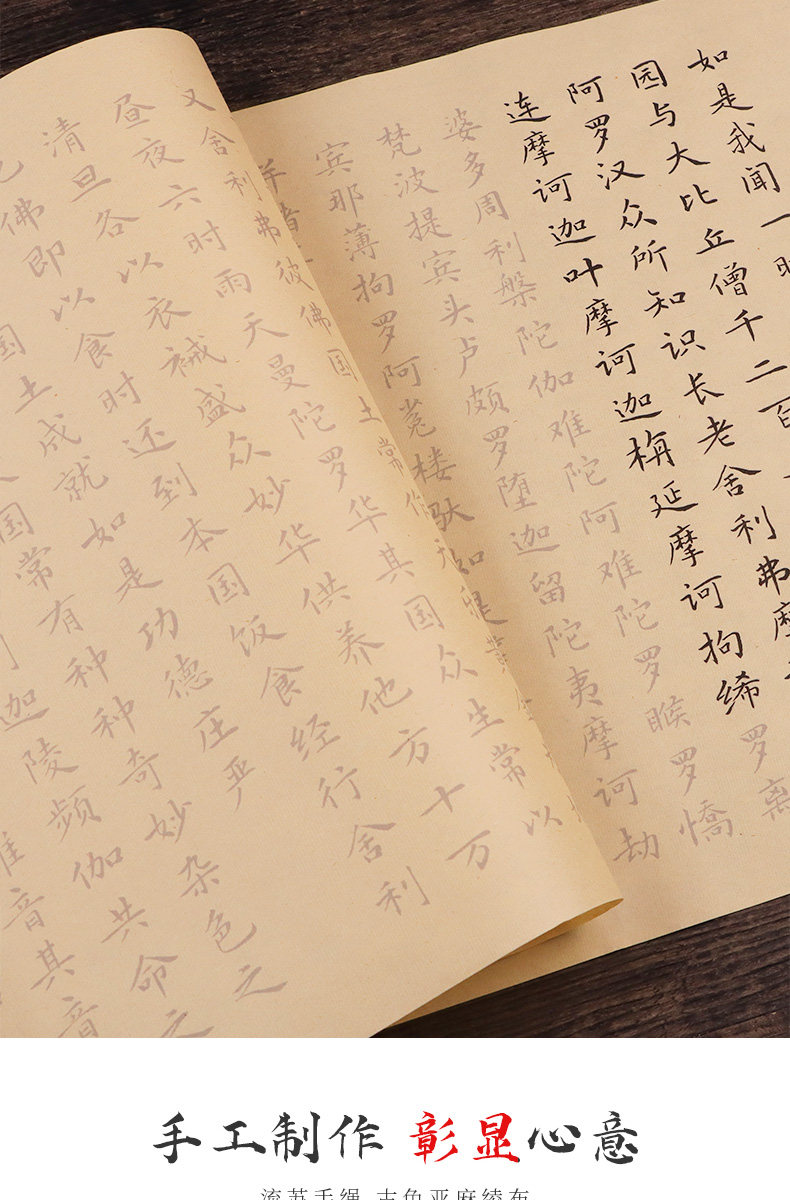 如是我闻一时
园与大比丘僧千二百
阿罗汉众所知识长老舍利弗摩
连摩诃迦叶摩诃迦栴延摩诃拘絺罗离
婆多周利槃陀伽难陀阿难陀罗睺罗憍
梵波提宾头卢颇罗堕迦留陀夷摩诃劫
宾那薄拘罗阿㝹楼驮如是等
又舍利弗彼佛国土常作
昼夜六时雨天曼陀罗华其国众生常以
清旦各以衣祴盛众妙华供养他方十万
佛即以食时还到本国饭食经行舍利
国土成就如是功德庄严
国常有种种奇妙杂色之
迦陵频伽共命之
音其音
手工制作 彰显心意
流苏手绳 古色亚麻绫布